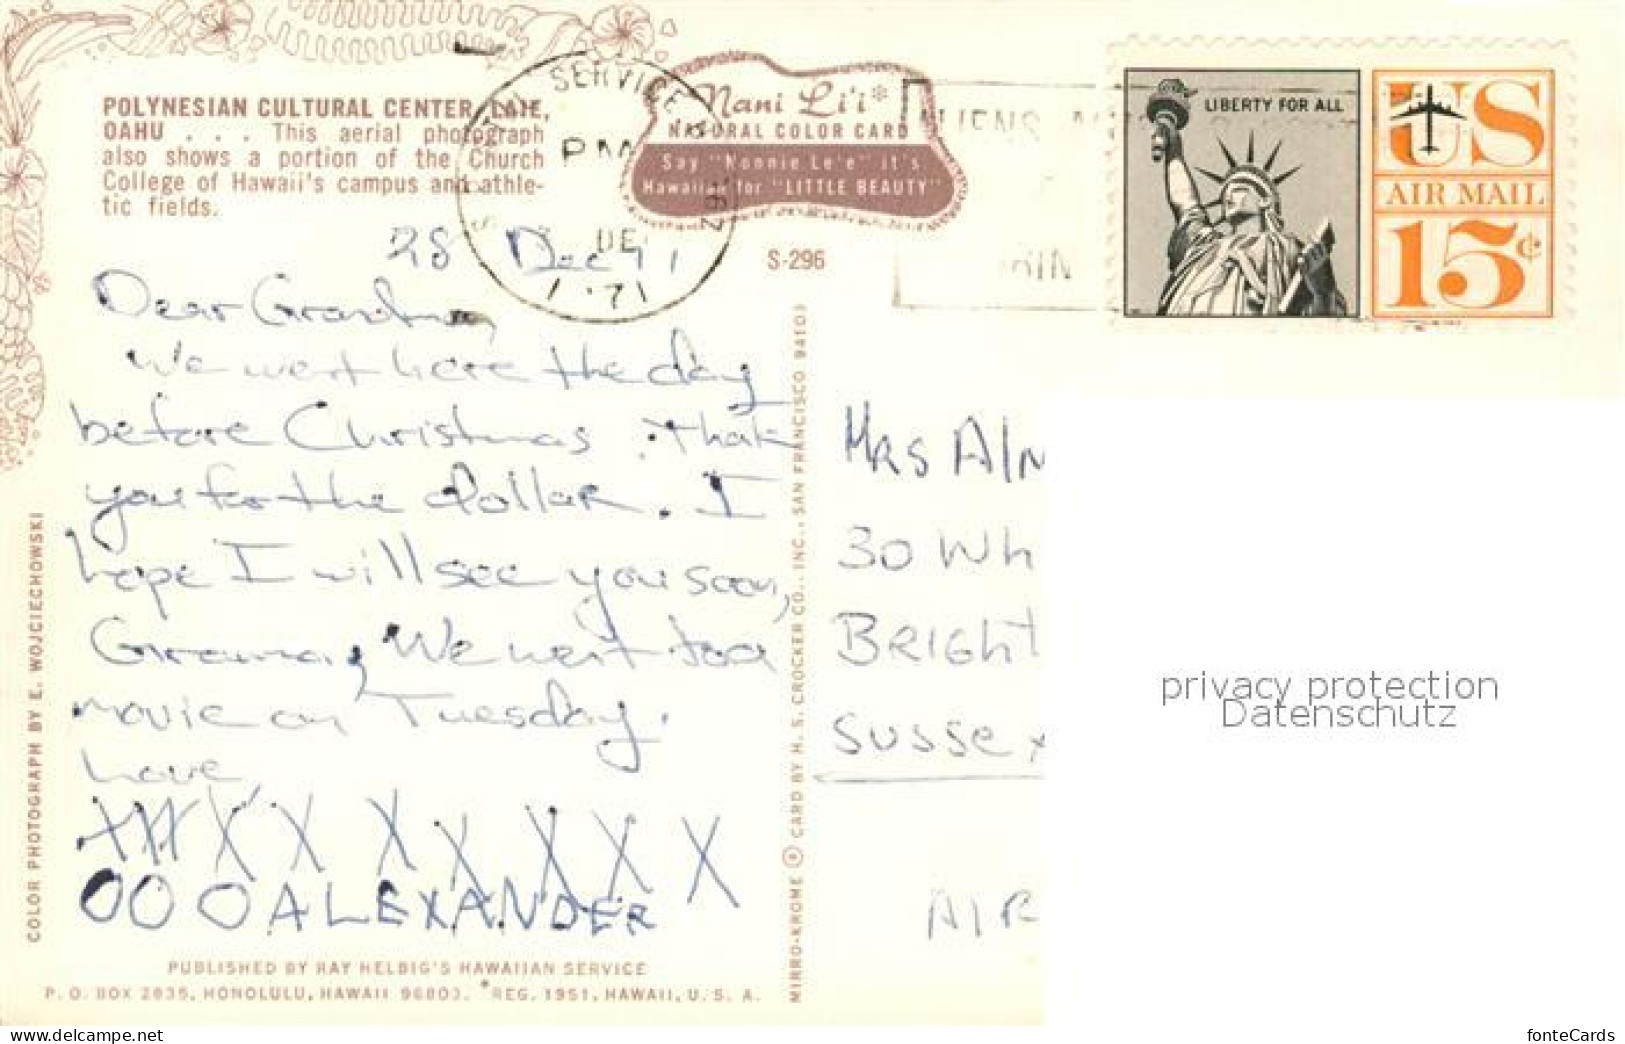 POLYNESIAN CULTURAL CENTER, LAIE,
OAHU . . . This aerial photograph
also shows a portion of the Church
College of Hawaii's campus and athle-
tic fields.
SERVICE
PM
DE
1 '71
Nani Li'i*
NATURAL COLOR CARD
Say "Nonnie Le'e" it's
Hawaiian for "LITTLE BEAUTY"
S-296
LIBERTY FOR ALL
US
AIR MAIL
15¢
28 Dec 71
Dear Grandma,
We went here the day
before Christmas. Thank
you for the dollar. I
hope I will see you soon,
Grandma, We went to a
movie on Tuesday.
Love
XXX X X X X X X X
OO O ALEXANDER
Mrs Al
30 Wh
BRIGHT
SUSSEX
AIR
COLOR PHOTOGRAPH BY E. WOJCIECHOWSKI
MIRRO-KROME ® CARD BY H. S. CROCKER CO., INC., SAN FRANCISCO 94103
PUBLISHED BY RAY HELBIG'S HAWAIIAN SERVICE
P. O. BOX 2835, HONOLULU, HAWAII 96803. *REG. 1951, HAWAII, U. S. A.
privacy protection
Datenschutz
www.delcampe.net
fonteCards